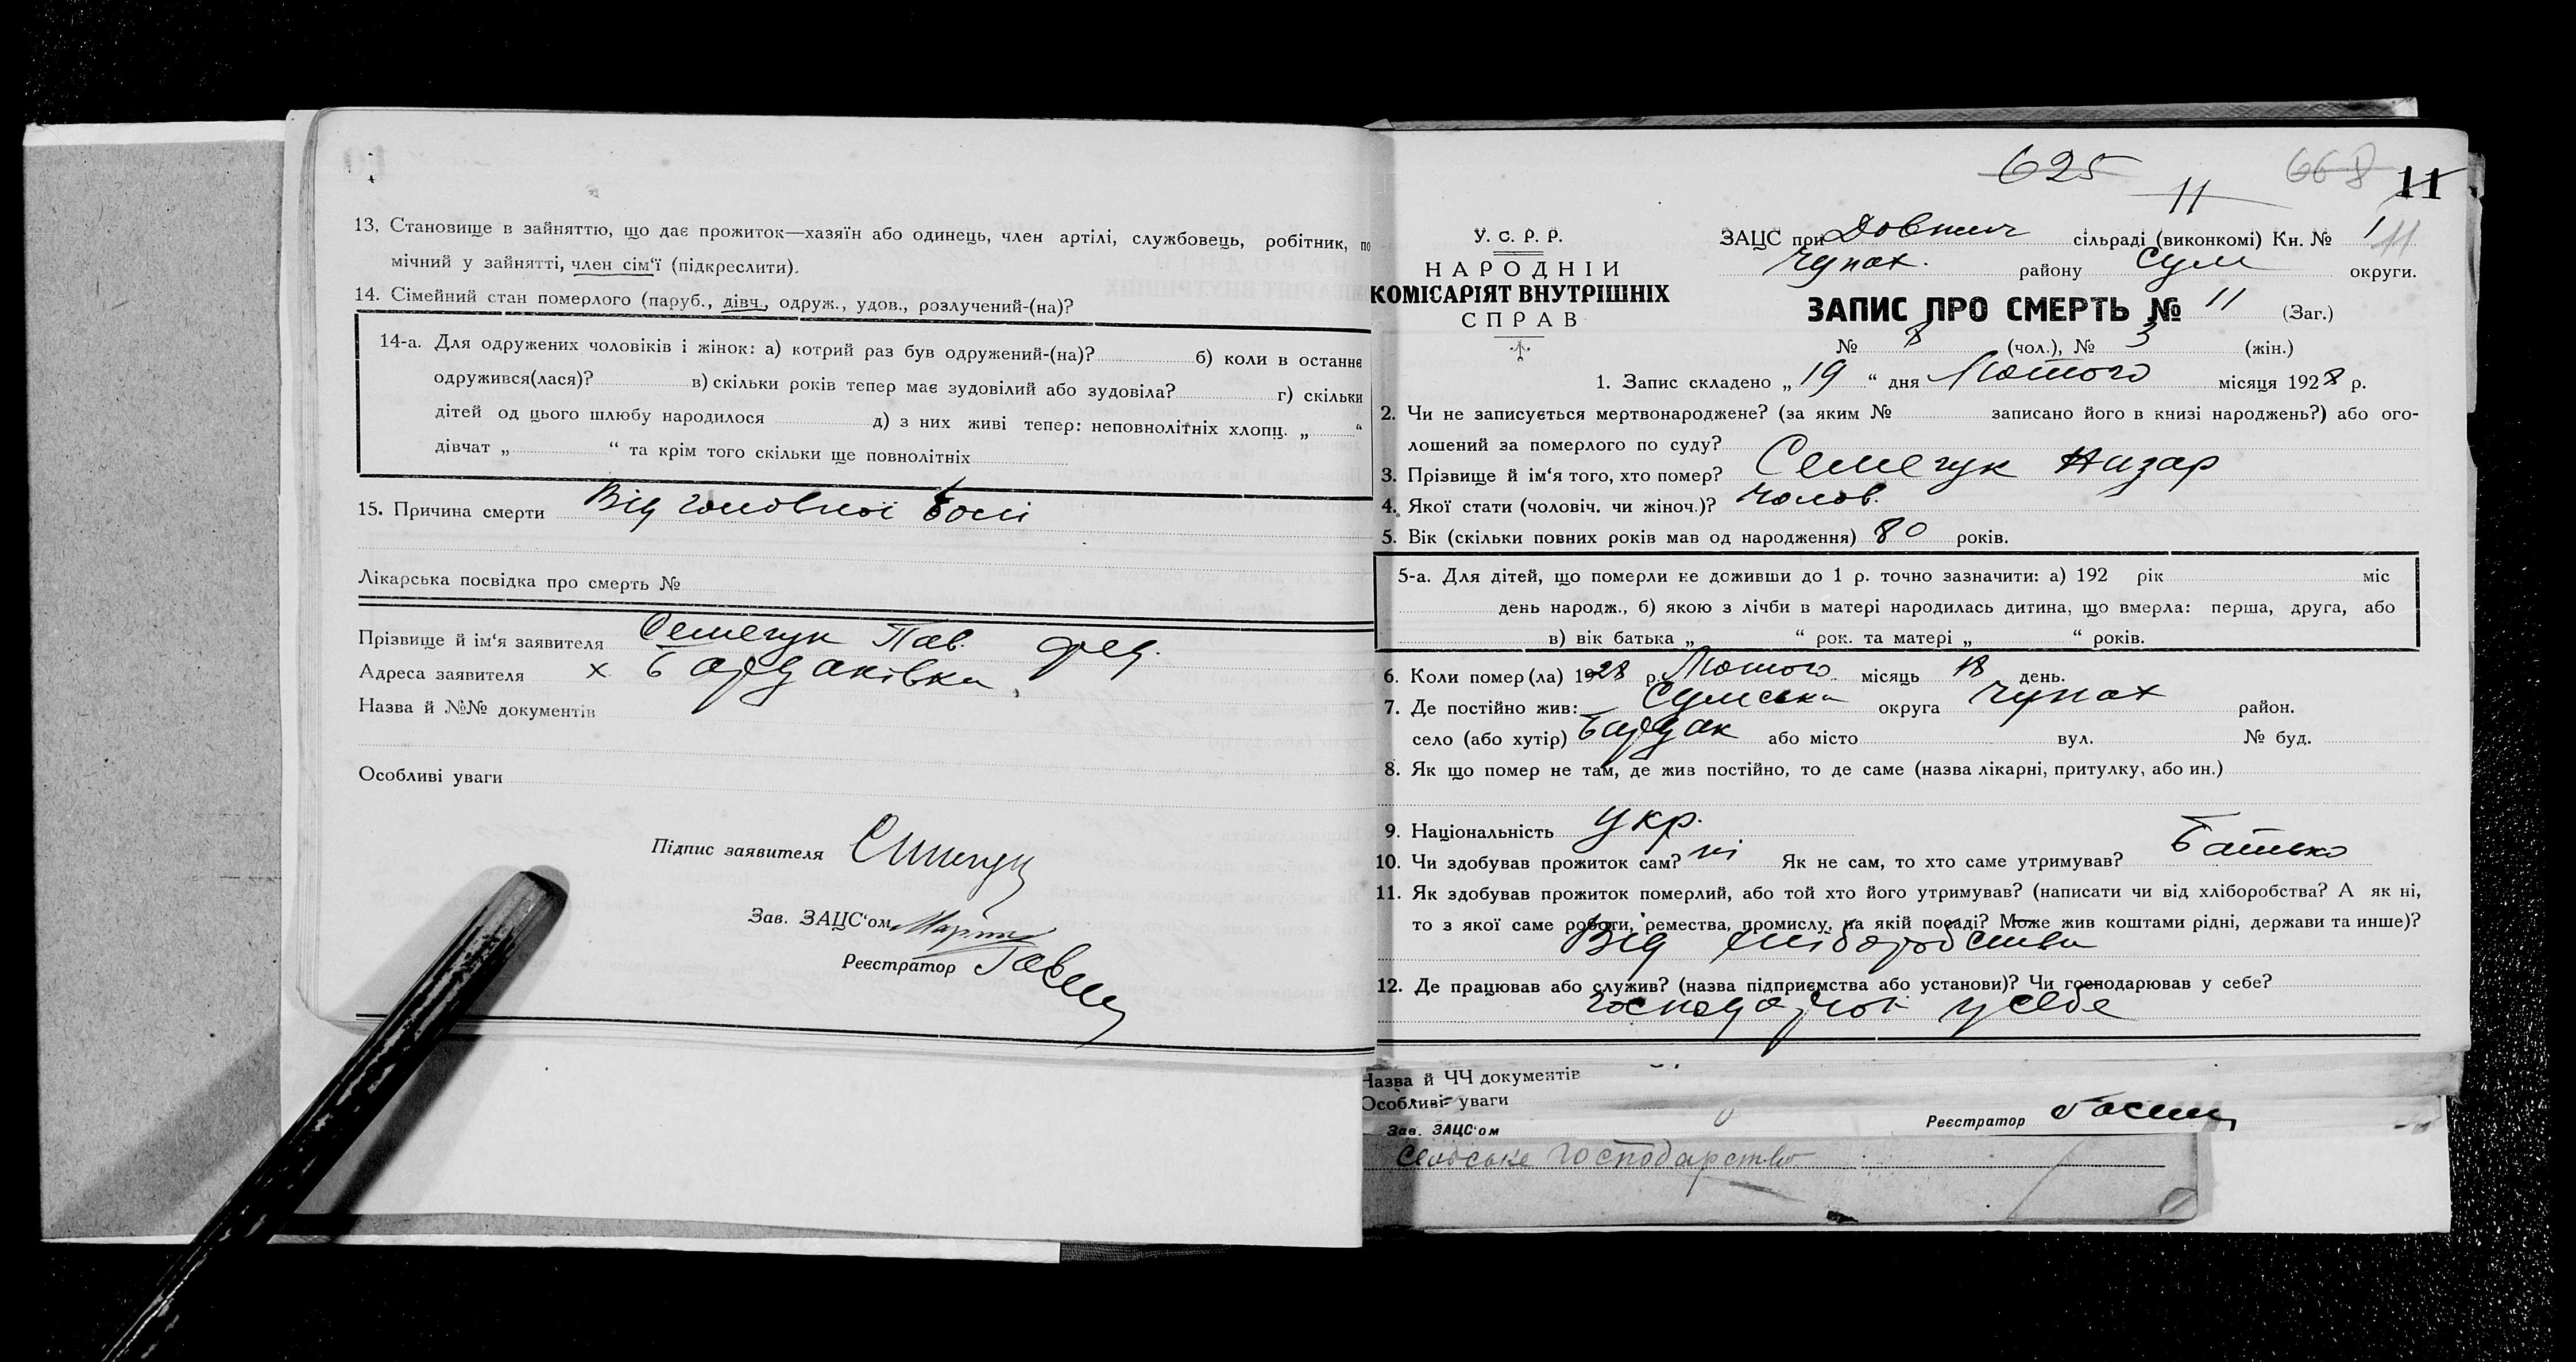 13. Становище в зайняттю, що дає прожиток—хазяїн або одинець, член артілі, службовець, робітник, по
мічний у зайнятті, член сім'ї (підкреслити).
14. Сімейний стан померлого (паруб., дівч., одруж., удов., розлучений-(на)?
14-а. Для одружених чоловіків і жінок: а) котрий раз був одружений-(на)? б) коли в останнє
одружився(лася)? в) скільки років тепер має зудовілий або зудовіла? г) скільки
дітей од цього шлюбу народилося д) з них живі тепер: неповнолітніх хлопц. „ “
дівчат „ “ та крім того скільки ще повнолітніх
15. Причина смерти Від головної болі
Лікарська посвідка про смерть №
Прізвище й ім'я заявителя Семечук Пав. Фед.
Адреса заявителя х Бардаківка
Назва й №№ документів
Особливі уваги
Підпис заявителя
Зав. ЗАЦС'ом
Реєстратор
625
11
668
11
У. С. Р. Р.
НАРОДНІЙ
КОМІСАРІЯТ ВНУТРІШНІХ
СПРАВ
ЗАЦС при сільраді (виконкомі) Кн. № 1
11
Чупах. району Сум округи.
ЗАПИС ПРО СМЕРТЬ № 11 (Заг.)
№ 8 (чол.), № 3 (жін.)
1. Запис складено „19“ дня Лютого місяця 1928 р.
2. Чи не записується мертвонароджене? (за яким № записано його в книзі народжень?) або ого-
лошений за померлого по суду?
3. Прізвище й ім'я того, хто помер? Семечук Назар
4. Якої стати (чоловіч. чи жіноч.)? Чолов.
5. Вік (скільки повних років мав од народження) 80 років.
5-а. Для дітей, що померли не доживши до 1 р. точно зазначити: а) 192 рік міс
день народж., б) якою з лічби в матері народилась дитина, що вмерла: перша, друга, або
в) вік батька „ “ рок. та матері „ “ років.
6. Коли помер(ла) 1928 р. Лютого місяць 18 день.
7. Де постійно жив: Сумська округа Чупах район.
село (або хутір) Бардак або місто вул. № буд.
8. Як що помер не там, де жив постійно, то де саме (назва лікарні, притулку, або ин.)
9. Національність Укр.
10. Чи здобував прожиток сам? ні Як не сам, то хто саме утримував? Батько
11. Як здобував прожиток померлий, або той хто його утримував? (написати чи від хліборобства? А як ні,
то з якої саме роботи, ремества, промислу, на якій посаді? Може жив коштами рідні, держави та инше)?
Від хліборобства
12. Де працював або служив? (назва підприємства або установи)? Чи господарював у себе?
у себе
Назва й ЧЧ документів
Особливі уваги
Зав. ЗАЦС'ом
Реєстратор
Сельське господарство